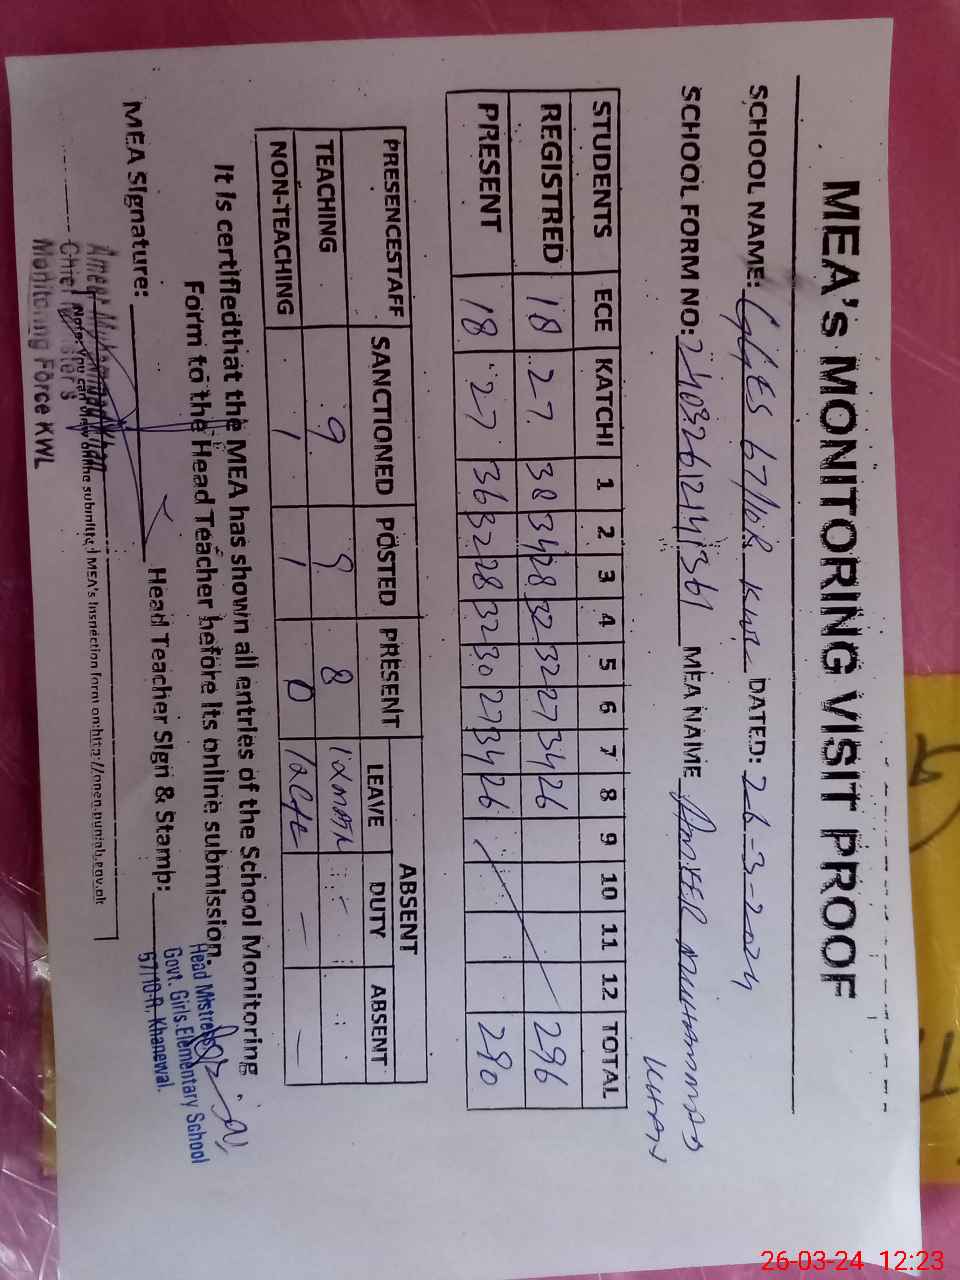 MEA's MONITORING VISIT PROOF
SCHOOL NAME: GGES 67/10R KWL DATED: 26-3-2024
SCHOOL FORM NO: MEA NAME AMEER MUHAMMAD
KHAN
STUDENTS ECE KATCHI 1 2 3 4 5 6 7 8 9 10 11 12 TOTAL
REGISTRED 18 27 38 34 28 32 32 27 34 26 296
PRESENT 18 27 36 32 28 32 30 27 34 26 290
PRESENCESTAFF SANCTIONED POSTED PRESENT ABSENT
LEAVE DUTY ABSENT
TEACHING 9 9 8
NON-TEACHING 1 1 0 - -
It is certifiedthat the MEA has shown all entries of the School Monitoring
Form to the Head Teacher before its online submission.
MEA Signature: Head Teacher Sign & Stamp:
Head Mistress
Govt. Girls.Elementary School
67/10-R, Khanewal.
Ameer Muhammad Khan
Chief Minister's
Monitoring Force KWL
Note: You can view online submitted MEA's Inspection form on:http://open.punjab.gov.pk
26-03-24 12:23